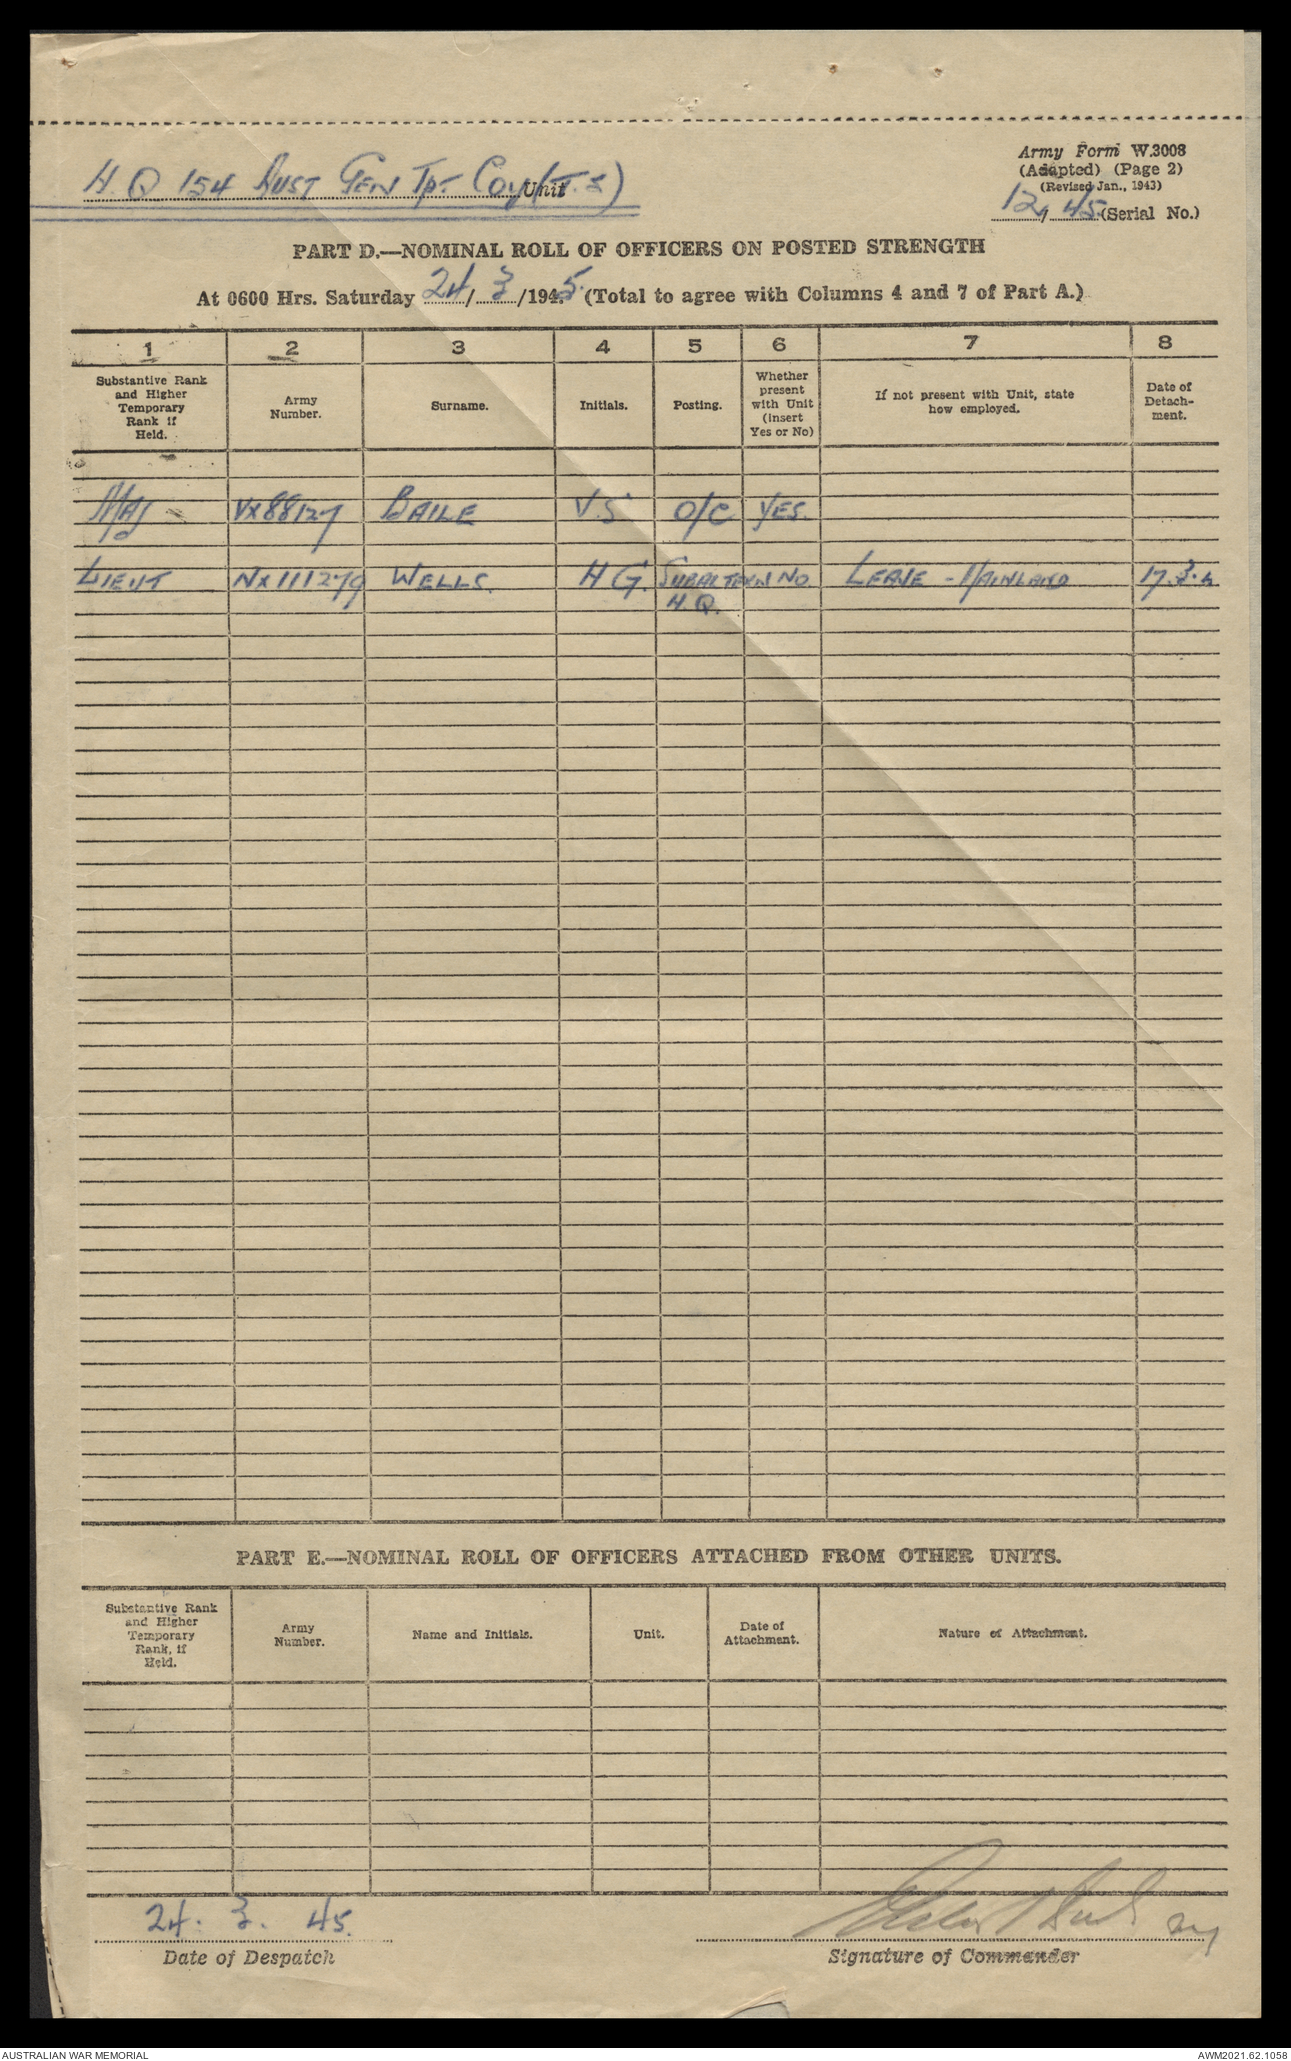 H.Q 154 AUST GEN TPT COY (T.S) Unit
Army Form W.3008
(Adapted) (Page 2)
(Revised Jan., 1943)
12/45 (Serial No.)
PART D.—NOMINAL ROLL OF OFFICERS ON POSTED STRENGTH
At 0600 Hrs. Saturday 24/3/1945. (Total to agree with Columns 4 and 7 of Part A.)
1 2 3 4 5 6 7 8
Substantive Rank and Higher Temporary Rank if Held.
Army Number.
Surname.
Initials.
Posting.
Whether present with Unit (Insert Yes or No)
If not present with Unit, state how employed.
Date of Detach-ment.
MAJ VX88127 BAILE V.S O/C YES.
LIEUT NX111279 WELLS. H G. SUBALTERN NO. LEAVE - MAINLAND 17.3.
H.Q.
PART E.—NOMINAL ROLL OF OFFICERS ATTACHED FROM OTHER UNITS.
Substantive Rank and Higher Temporary Rank, if Held.
Army Number.
Name and Initials.
Unit.
Date of Attachment.
Nature of Attachment.
24. 3. 45.
Date of Despatch
Signature of Commander
AUSTRALIAN WAR MEMORIAL
AWM2021.62.1058